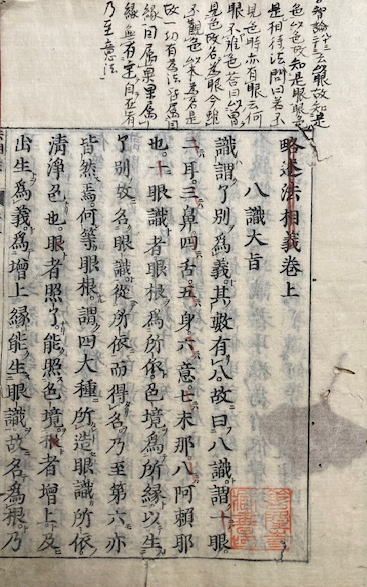 智論云眼故知是
色以色故知是眼眼色
是相待法問曰若不
見色時亦有眼云何
眼不離色答曰以曾
見色故名爲眼今雖
不觀色以本爲名是
故一切有爲法皆屬因
緣因屬果果屬
緣無有定自在有
乃至意法
略述法相義卷上
八識大旨
識謂了別爲義其數有八故曰八識謂一眼
二耳三鼻四舌五身六意七末那八阿賴耶
也一眼識者眼根爲所依色境爲所緣以生
了別故名眼識從所依而得名乃至第六亦
皆然焉何等眼根謂四大種所造眼識所依
淸淨色也眼者照了能照色境根者增上及
出生爲義爲增上緣能生眼識故名爲根乃